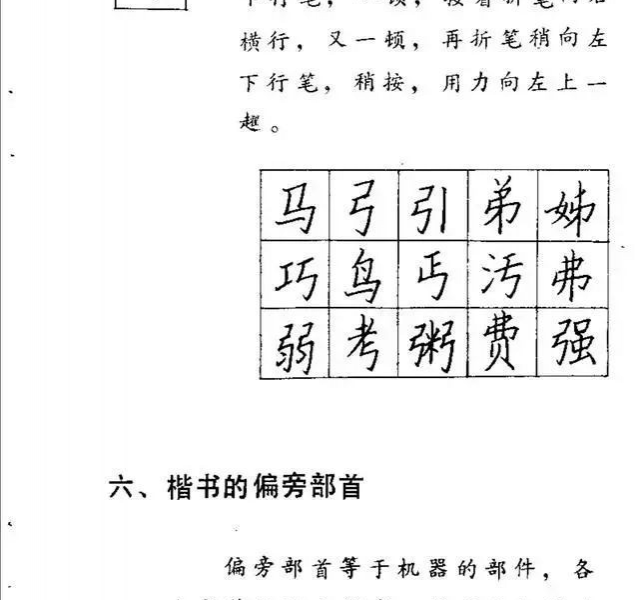 横行，又一顿，再折笔稍向左
下行笔，稍按，用力向左上一
趯。
马弓引弟姊
巧鸟丐污弗
弱考粥费强
六、楷书的偏旁部首
偏旁部首等于机器的部件，各